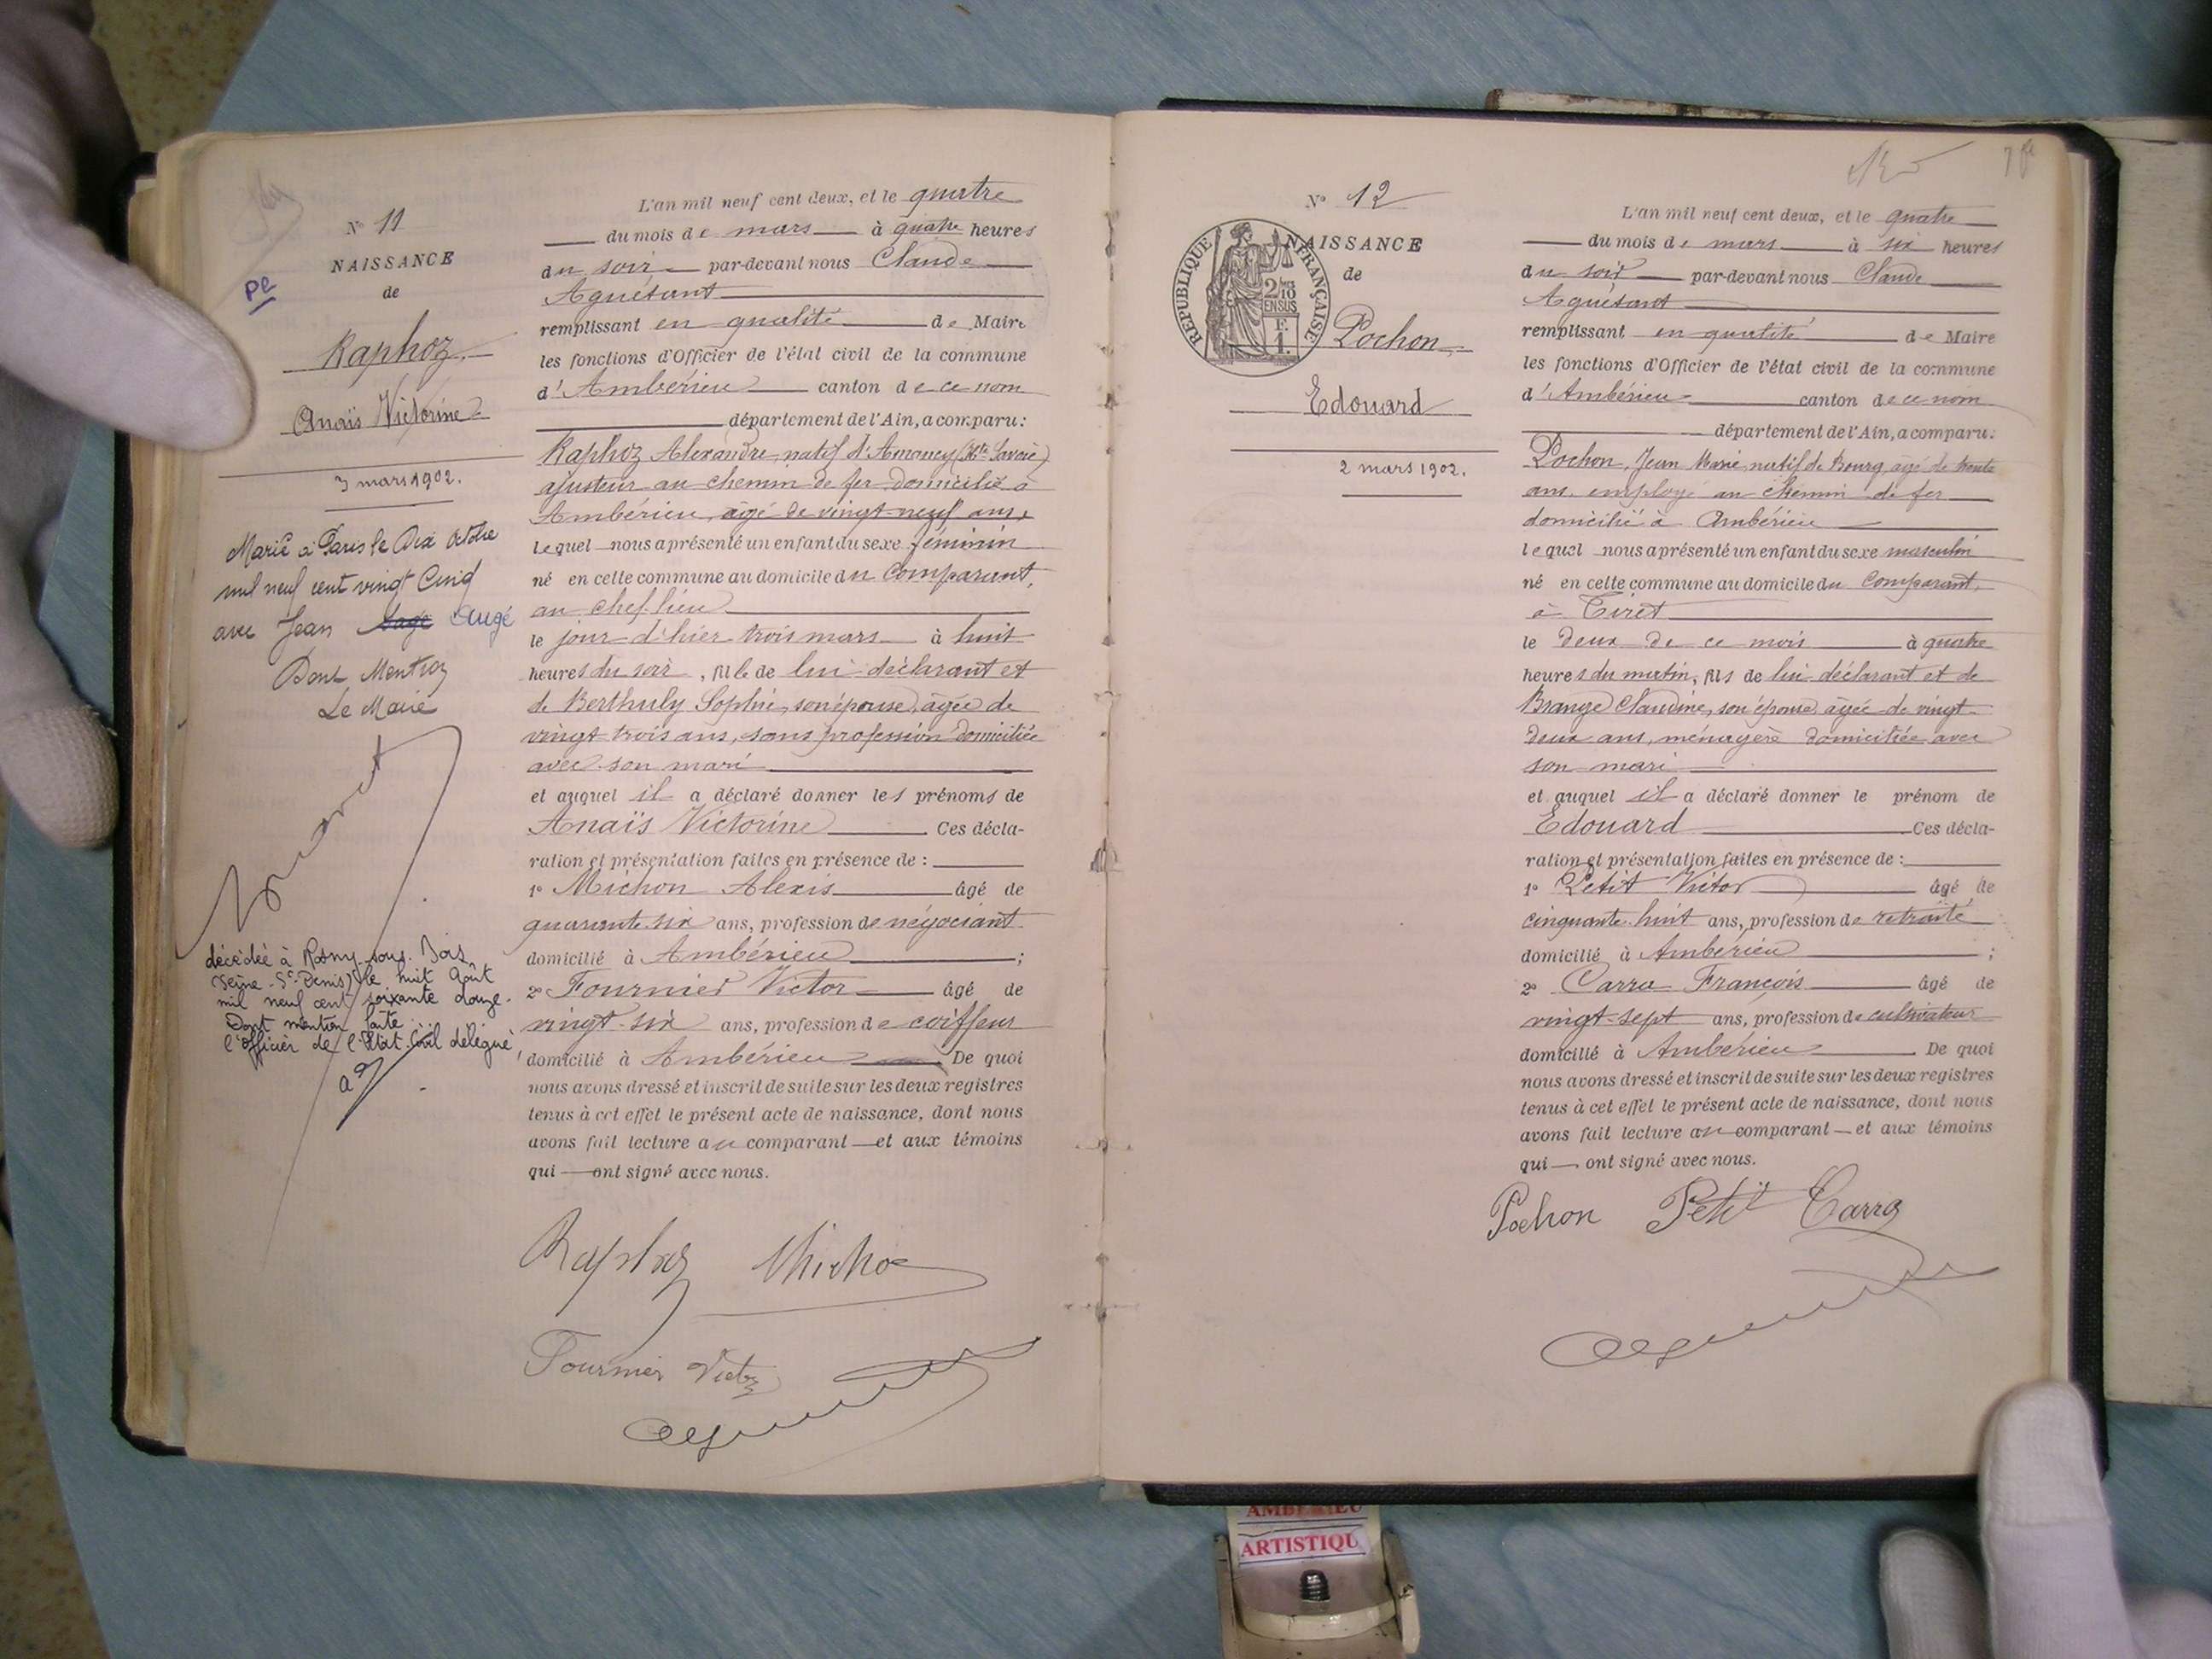 N° 11
NAISSANCE
de
Raphoz
Anaïs Victorine
3 mars 1902.
Marié à Paris le Dix Octobre
mil neuf cent vingt Cinq
avec Jean Augé
Dont Mention
Le Maire
décédée à Rosny-sous-Bois
(Seine-St-Denis) le huit Août
mil neuf cent soixante douze.
Dont mention faite
l'officier de l'Etat-Civil délégué
pe
L'an mil neuf cent deux, et le quatre
du mois de mars à quatre heures
du soir par-devant nous Claude
Aguétant
remplissant en qualité de Maire
les fonctions d'Officier de l'état civil de la commune
d'Ambérieu canton de ce nom
département de l'Ain, a comparu:
Raphoz Alexandre, natif d'Annecy (Hte Savoie)
ajusteur au chemin de fer domicilié à
Ambérieu, âgé de vingt-neuf ans,
lequel nous a présenté un enfant du sexe féminin
né en cette commune au domicile du Comparant,
au chef-lieu
le jour d'hier trois mars à huit
heures du soir, fille de lui déclarant et
de Berthuly Sophie, son épouse, âgée de
vingt trois ans, sans profession domiciliée
avec son mari
et auquel il a déclaré donner les prénoms de
Anaïs Victorine Ces décla-
ration et présentation faites en présence de :
1° Michon Alexis âgé de
quarante-six ans, profession de négociant
domicilié à Ambérieu ;
2° Fournier Victor âgé de
vingt-six ans, profession de coiffeur
domicilié à Ambérieu De quoi
nous avons dressé et inscrit de suite sur les deux registres
tenus à cet effet le présent acte de naissance, dont nous
avons fait lecture au comparant et aux témoins
qui ont signé avec nous.
Raphoz Michon
Fournier Victor
N° 12
NAISSANCE
de
RÉPUBLIQUE FRANÇAISE
2/10
EN SUS
F.
1.
Pochon
Edouard
2 mars 1902.
L'an mil neuf cent deux, et le quatre
du mois de mars à six heures
du soir par-devant nous Claude
Aguétant
remplissant en qualité de Maire
les fonctions d'Officier de l'état civil de la commune
d'Ambérieu canton de ce nom
département de l'Ain, a comparu:
Pochon, Jean Marie, natif de Bourg, âgé de trente
ans, employé au chemin de fer
domicilié à Ambérieu
lequel nous a présenté un enfant du sexe masculin
né en cette commune au domicile du Comparant,
à Tiret
le deux de ce mois à quatre
heures du matin, fils de lui déclarant et de
Brange Claudine, son épouse, âgée de vingt-
deux ans, ménagère domiciliée avec
son mari
et auquel il a déclaré donner le prénom de
Edouard Ces décla-
ration et présentation faites en présence de :
1° Petit Victor âgé de
cinquante-huit ans, profession de retraité
domicilié à Ambérieu ;
2° Carra François âgé de
vingt-sept ans, profession de cultivateur
domicilié à Ambérieu De quoi
nous avons dressé et inscrit de suite sur les deux registres
tenus à cet effet le présent acte de naissance, dont nous
avons fait lecture au comparant et aux témoins
qui ont signé avec nous.
Pochon Petit Carra
AMBERIEU
ARTISTIQU